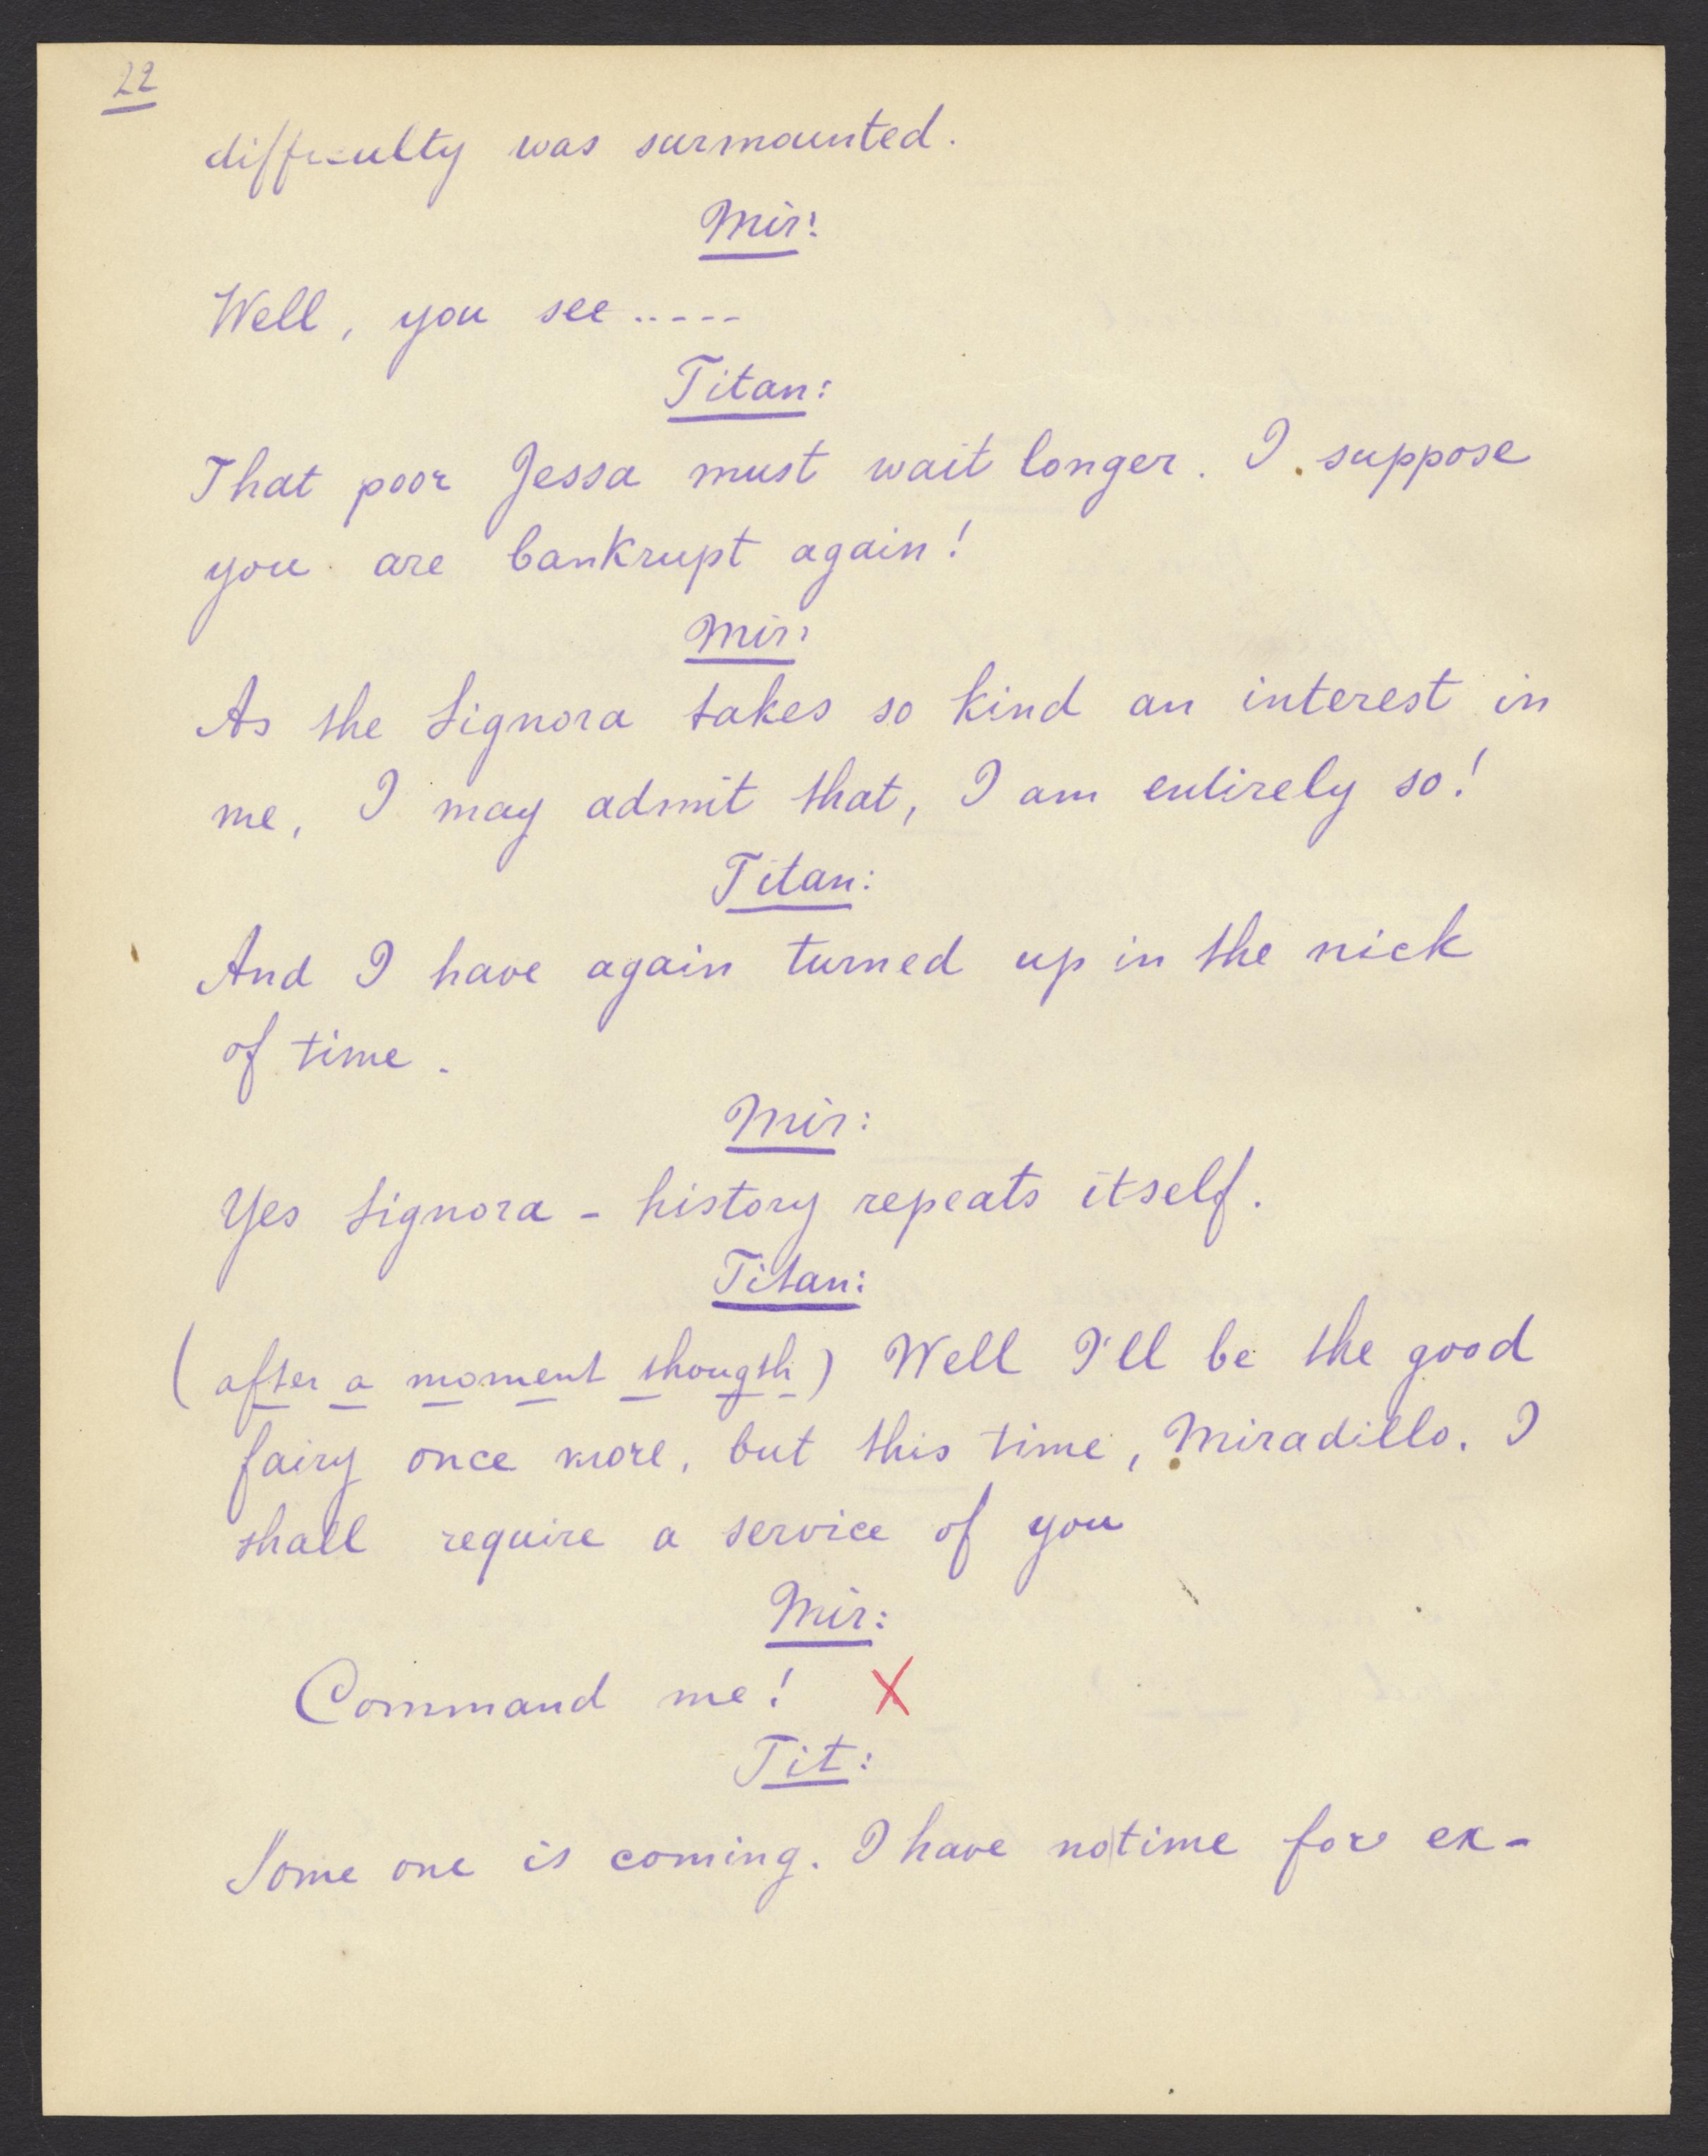 22
difficulty was surmounted.
Mir:
Well, you see .....
Titan:
That poor Jessa must wait longer. I suppose
you are bankrupt again!
Mir:
As the Signora takes so kind an interest in
me, I may admit that, I am entirely so!
Titan:
And I have again turned up in the nick
of time.
Mir:
Yes Signora - history repeats itself.
Titan:
(after a moment thougth) Well I'll be the good
fairy once more, but this time, Miradillo. I
shall require a service of you
Mir:
Command me! X
Tit:
Some one is coming. I have no|time for ex-